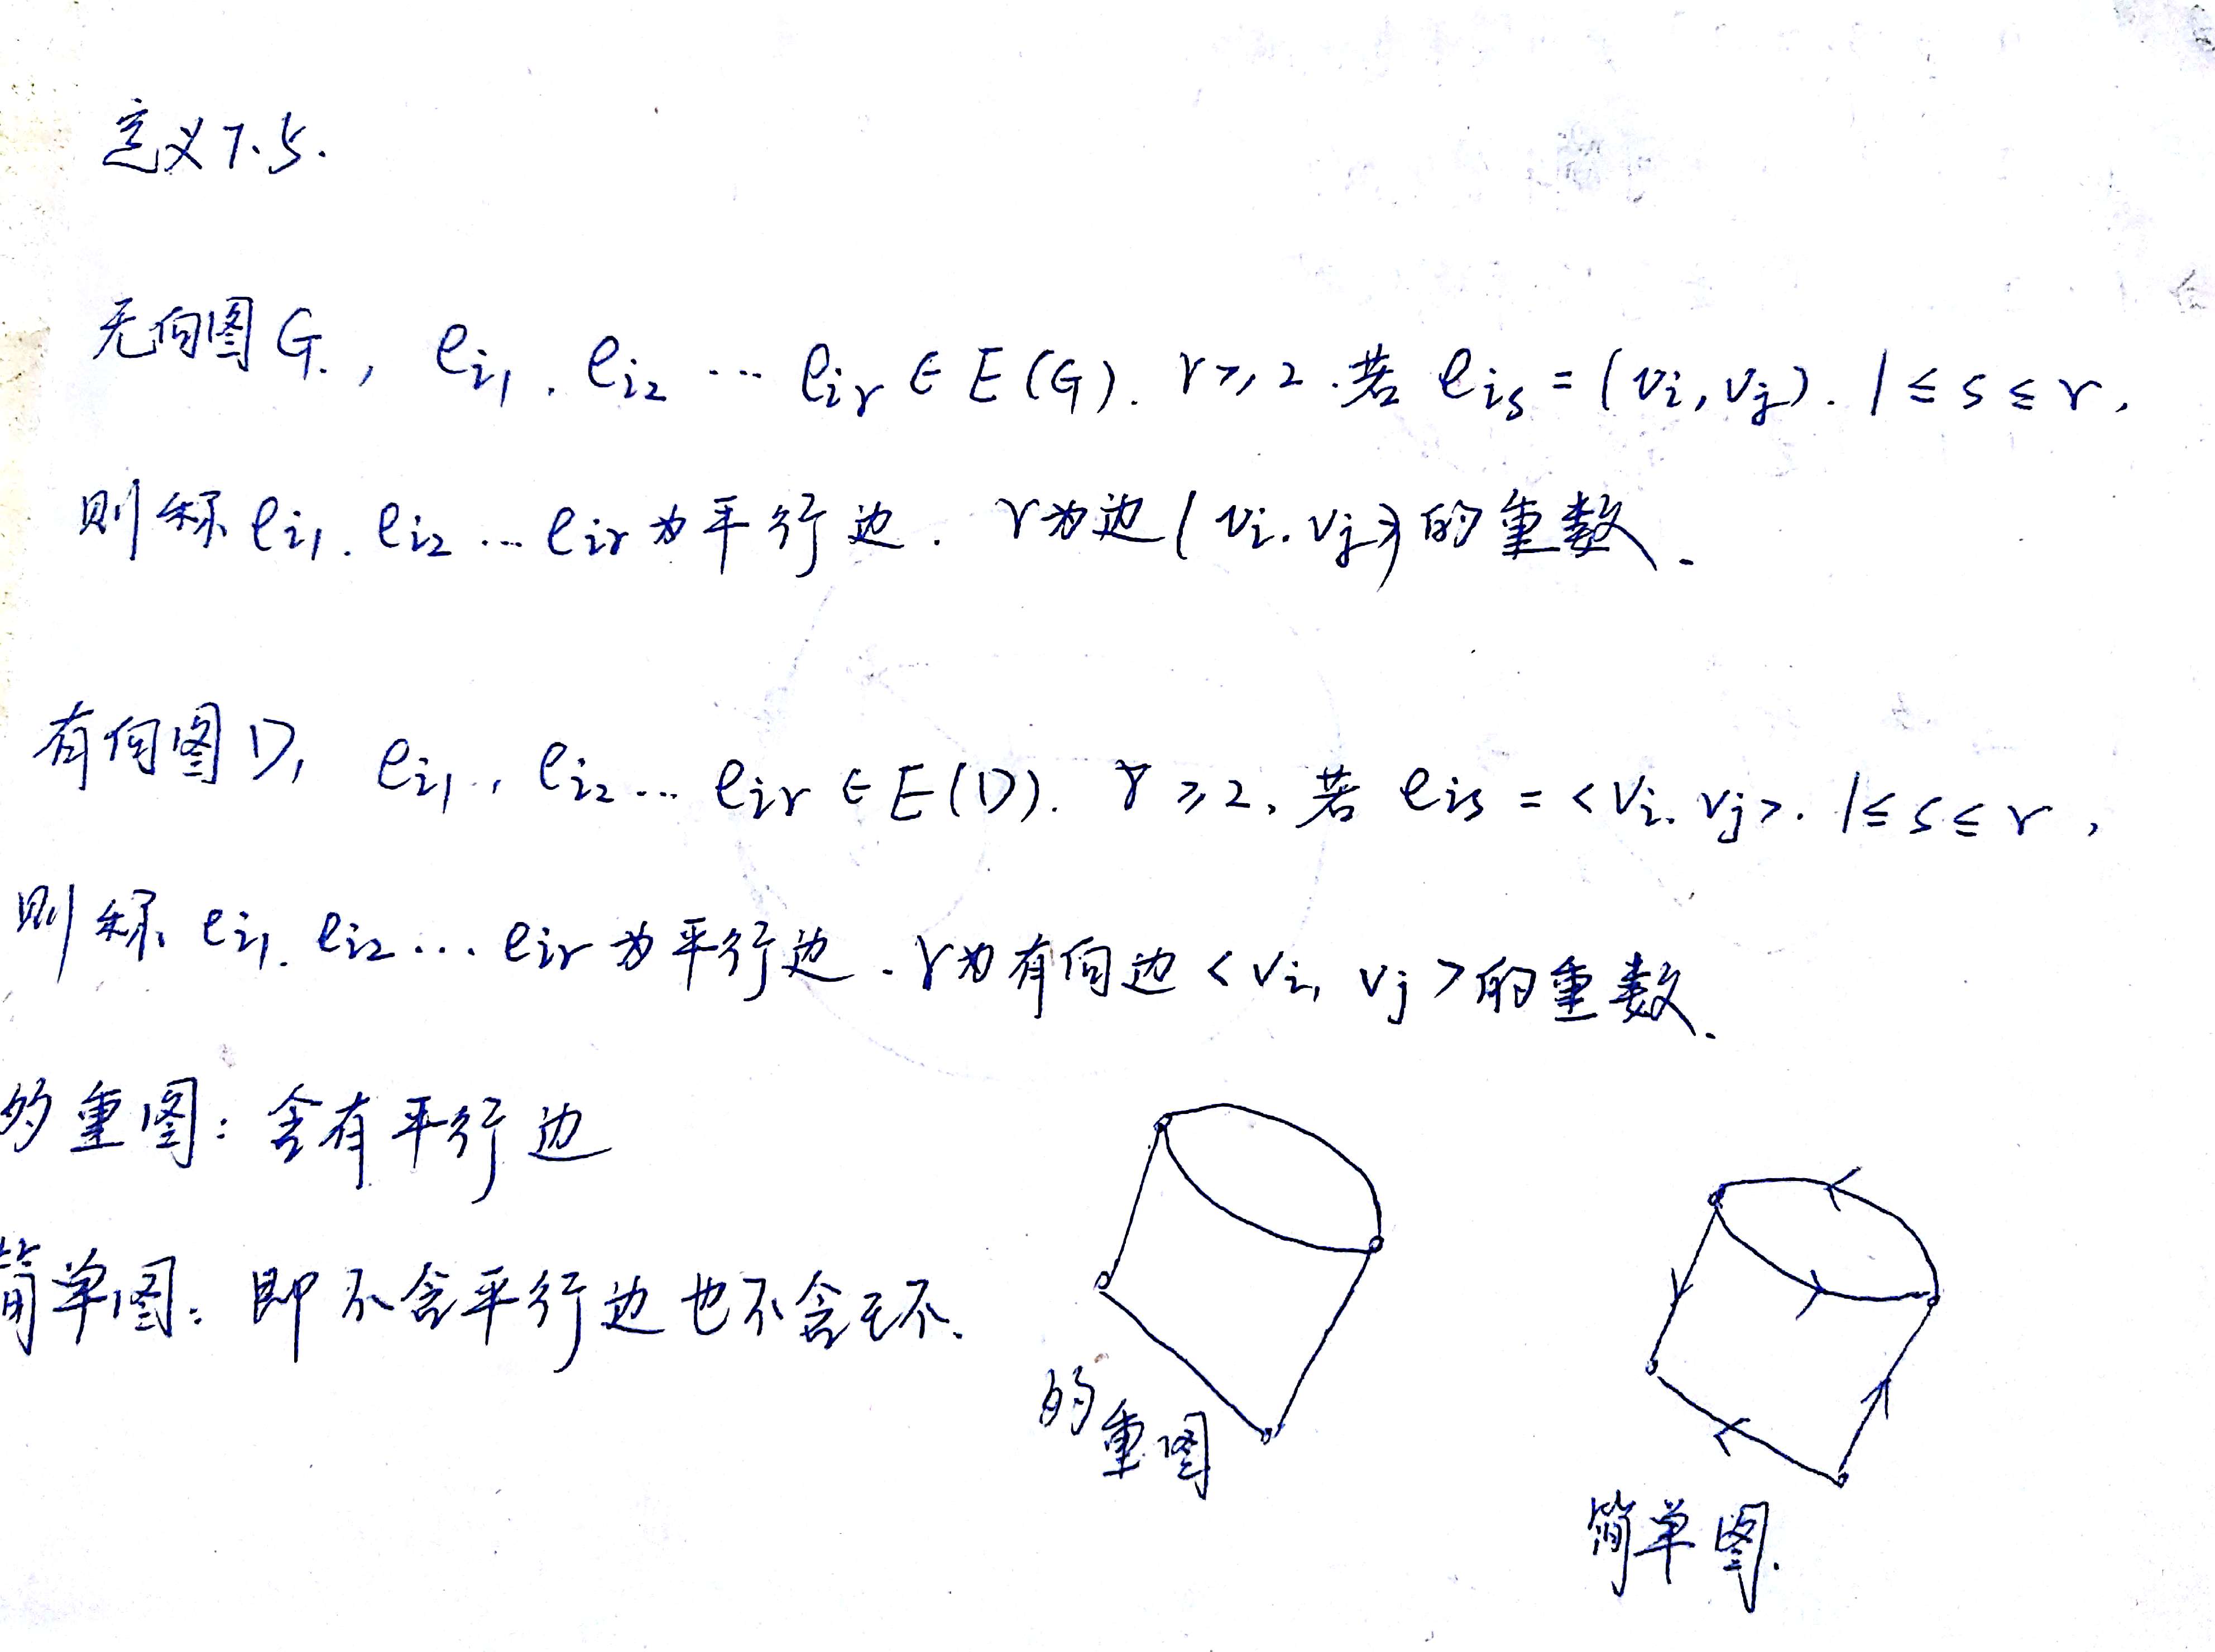 定义7.5.
无向图G., ei1. ei2 … eir ∈ E(G). r≥2. 若 eis = (vi, vj). 1 ≤ s ≤ r,
则称 ei1. ei2 … eir 为平行边. r为边(vi. vj)的重数.
有向图D, ei1., ei2 … eir ∈ E(D). r≥2, 若 eis = <vi. vj>. 1≤ s ≤ r,
则称 ei1. ei2 … eir 为平行边. r为有向边<vi, vj>的重数.
重图: 含有平行边
简单图: 即不含平行边也不含环.
重图
简单图.